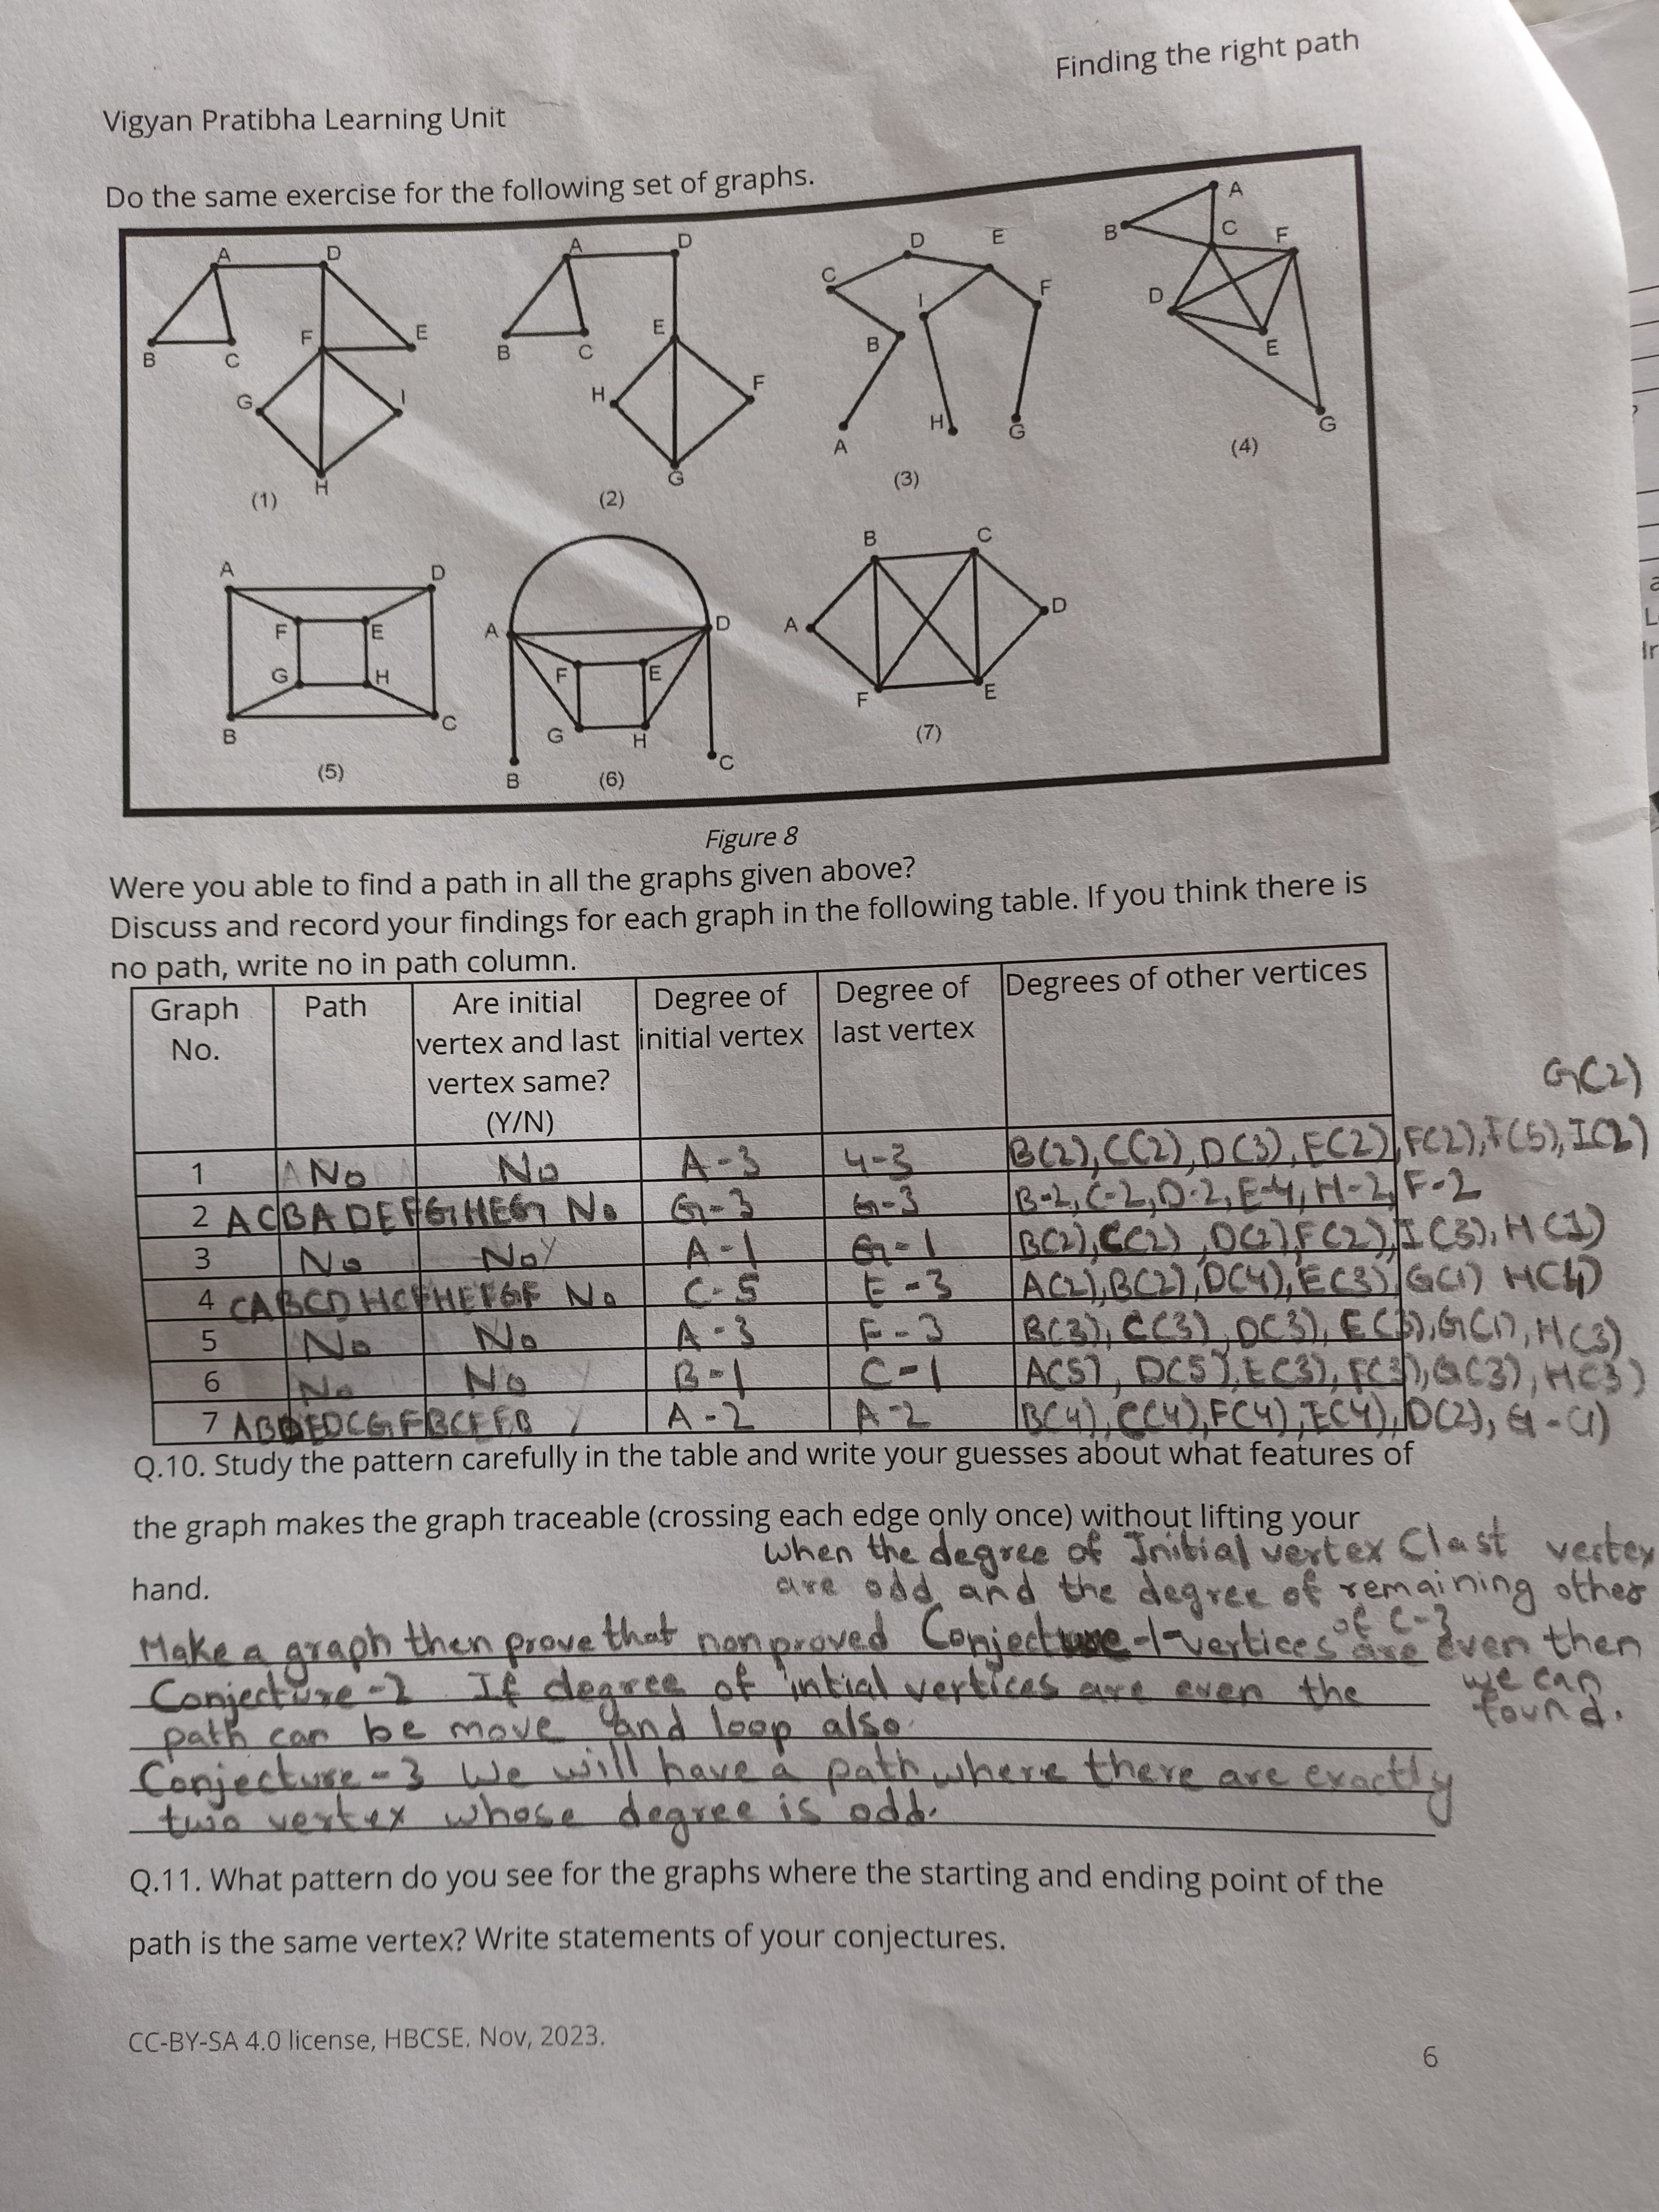 Finding the right path
Vigyan Pratibha Learning Unit
Do the same exercise for the following set of graphs.
A D A D D E A
B C F
C F
B C F E B C E I B D
G I H F E
H G A H G G
(1) (2) (3) (4)
A D B C
F E A D A D
G H F E
B C G H F E
B C
(5) (6) (7)
Figure 8
Were you able to find a path in all the graphs given above?
Discuss and record your findings for each graph in the following table. If you think there is
no path, write no in path column.
Graph No. Path Are initial vertex and last vertex same? (Y/N) Degree of initial vertex Degree of last vertex Degrees of other vertices
G(2)
1 No No A-3 4-3 B(2), C(2), D(3), E(2), F(2), F(5), I(2)
2 ACBADEFGHEG No G-3 G-3 B-2, C-2, D-2, E-4, H-2, F-2
3 No No Y A-1 G-1 B(2), C(2), D(2), F(2), I(3), H(1)
4 CABCDHCFHEFGF No C-5 E-3 A(2), B(2), D(4), E(3), G(1) H(4)
5 No No A-3 F-3 B(3), C(3), D(3), E(3), G(1), H(3)
6 No No B-1 C-1 A(5), D(5), E(3), F(3), G(3), H(3)
7 Y A-2 A-2 B(4), C(4), F(4), E(4), D(2), G-(1)
Q.10. Study the pattern carefully in the table and write your guesses about what features of
the graph makes the graph traceable (crossing each edge only once) without lifting your
hand.
when the degree of Initial vertex C last vertex
are odd and the degree of remaining other
of C-3
Make a graph then prove that non proved Conjecture-1- vertices are even then
we can
found.
Conjecture-2 If degree of intial vertices are even the
path can be move and loop also.
Conjecture-3 We will have a path where there are exactly
two vertex whose degree is odd.
Q.11. What pattern do you see for the graphs where the starting and ending point of the
path is the same vertex? Write statements of your conjectures.
CC-BY-SA 4.0 license, HBCSE. Nov, 2023.
6